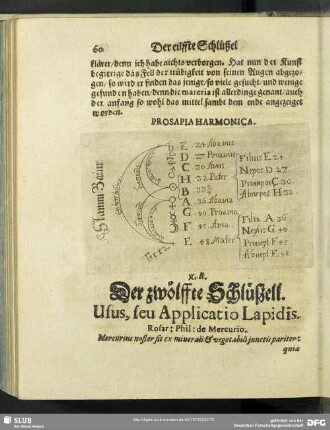 60 Der eilffte Schlüßel
klåret / denn ich habe nichts verborgen. Hat nun der Kunst
begierige das Fell der trübigkeit von seinen Augen abgezo-
gen / so wird er finden das jenige / so viele gesucht / und wenige
gefunden haben / denn die materia ist allerdings genant / auch
der anfang so wohl das mittel sambt dem ende angezeiget
worden.
PROSAPIA HARMONICA.
Stamm Baum
Terra
E. 24 Abavus
D 27 Proavus
C 30 Avus
H 32 Pater
B
A 36 Abavia
G 40 Proavia
F 45 Avia
E 48 Mater
Filius E 24
Nepos D 27
Pronepos C 30
Abnepos H 32
Filia A 36
Neptis G 40
Pronept F 45
Abnept E 48
X. II.
Der zwölffte Schlüßell.
Usus, seu Applicatio Lapidis.
Rosar: Phil: de Mercurio.
Mercurius noster fit ex minerali & vegetabili junctis pariter:
quia
SLUB
Wir führen Wissen.
Deutschen Forschungsgemeinschaft